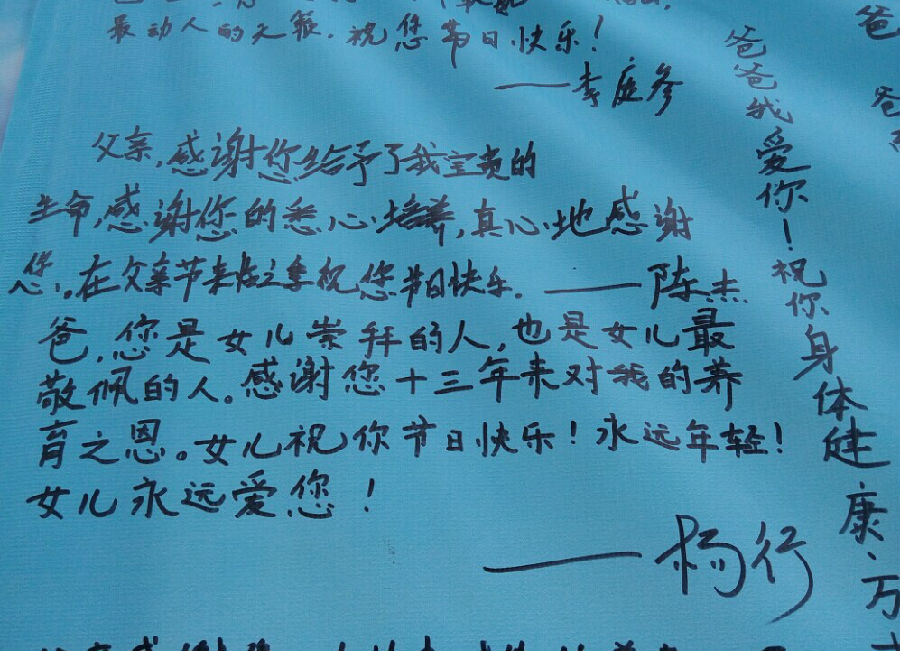 最动人的无我.祝您节日快乐!
——李庭参
父亲,感谢您给予了我宝贵的
生命,感谢您的悉心培养,真心地感谢
您!。在父亲节来临之季祝您节日快乐.——陈杰
爸,您是女儿崇拜的人,也是女儿最
敬佩的人。感谢您十三年来对我的养
育之恩。女儿祝你节日快乐!永远年轻!
女儿永远爱您!
——杨行
爸爸我爱你!祝你身体健康、万
爸
爸